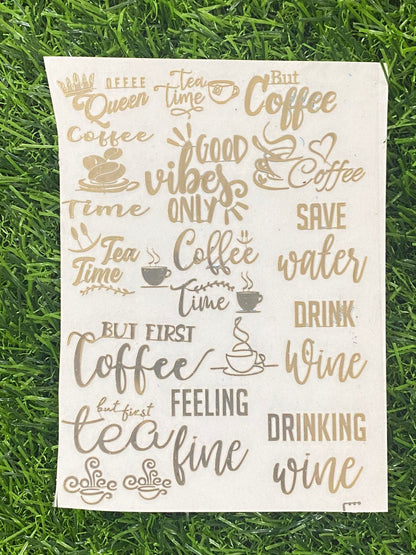 OFFEE
Queen
Tea
Time
But
Coffee
Coffee
Time
GOOD
vibes
ONLY
Coffee
SAVE
water
Tea
Time
Coffee
Time
DRINK
Wine
BUT FIRST
Coffee
but first
tea
FEELING
fine
DRINKING
wine